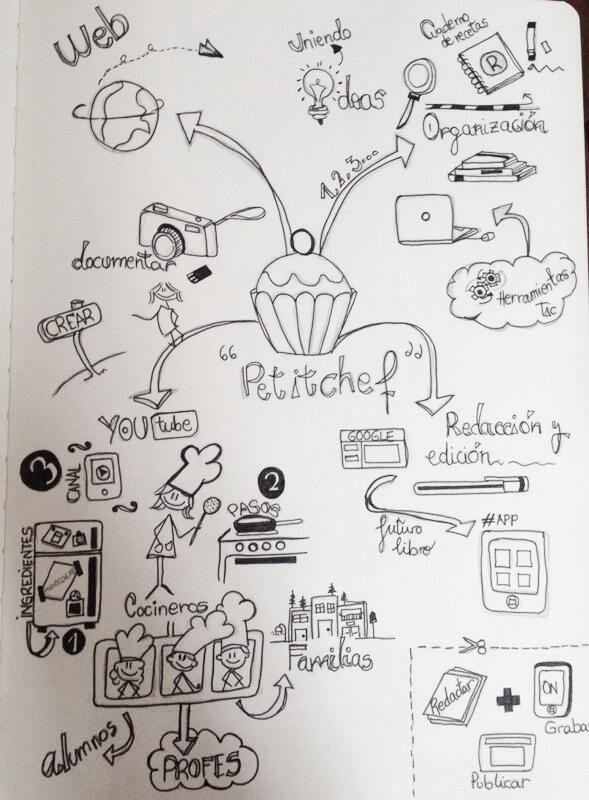 Web
Uniendo
Ideas
Cuaderno
de recetas
R
Organización
1,2,3...
documentar
CREAR
Herramientas
Tac
"Petitchef"
YOUtube
3
CANAL
2
PASOS
INGREDIENTES
1
Cocineros
Familias
alumnos
PROFES
GOOGLE
Redacción y
edición
futuro
libro
#APP
Redactar
ON
Grabar
Publicar